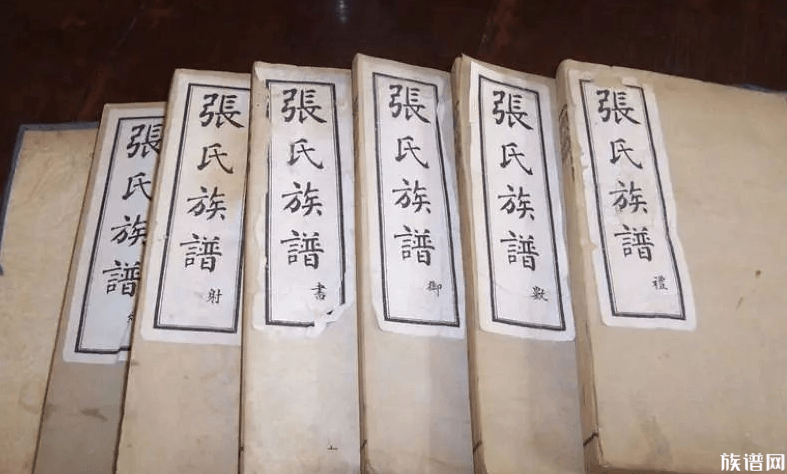 張氏族譜
張氏族譜 射
張氏族譜 書
張氏族譜 御
張氏族譜 數
張氏族譜 禮
族谱网